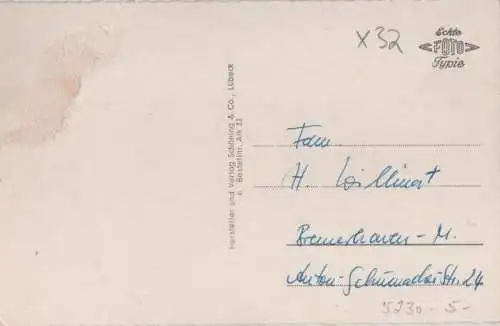 x32
Echte
FOTO
Typie
Hersteller und Verlag Schöning & Co., Lübeck
Bestellnr. Alk 33
Fam.
H. Willmert
Bremerhaven-M.
Anton-Schumacher Str. 24
5230 - 5 -